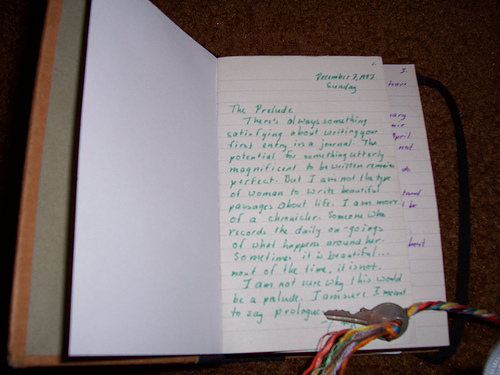 1.
December 7, 1997
Sunday
The Prelude
There's always something
satisfying about writing your
first entry in a journal. The
potential for something utterly
magnificent to be written remains
perfect. But I am not the type
of woman to write beautiful
passages about life. I am more
of a chronicler. Someone who
records the daily on-goings
of what happens around her.
Sometimes it is beautiful...
most of the time, it is not.
I am not sure why this would
be a prelude. I am sure I meant
to say prologue
3.
very
April
not
do
I be